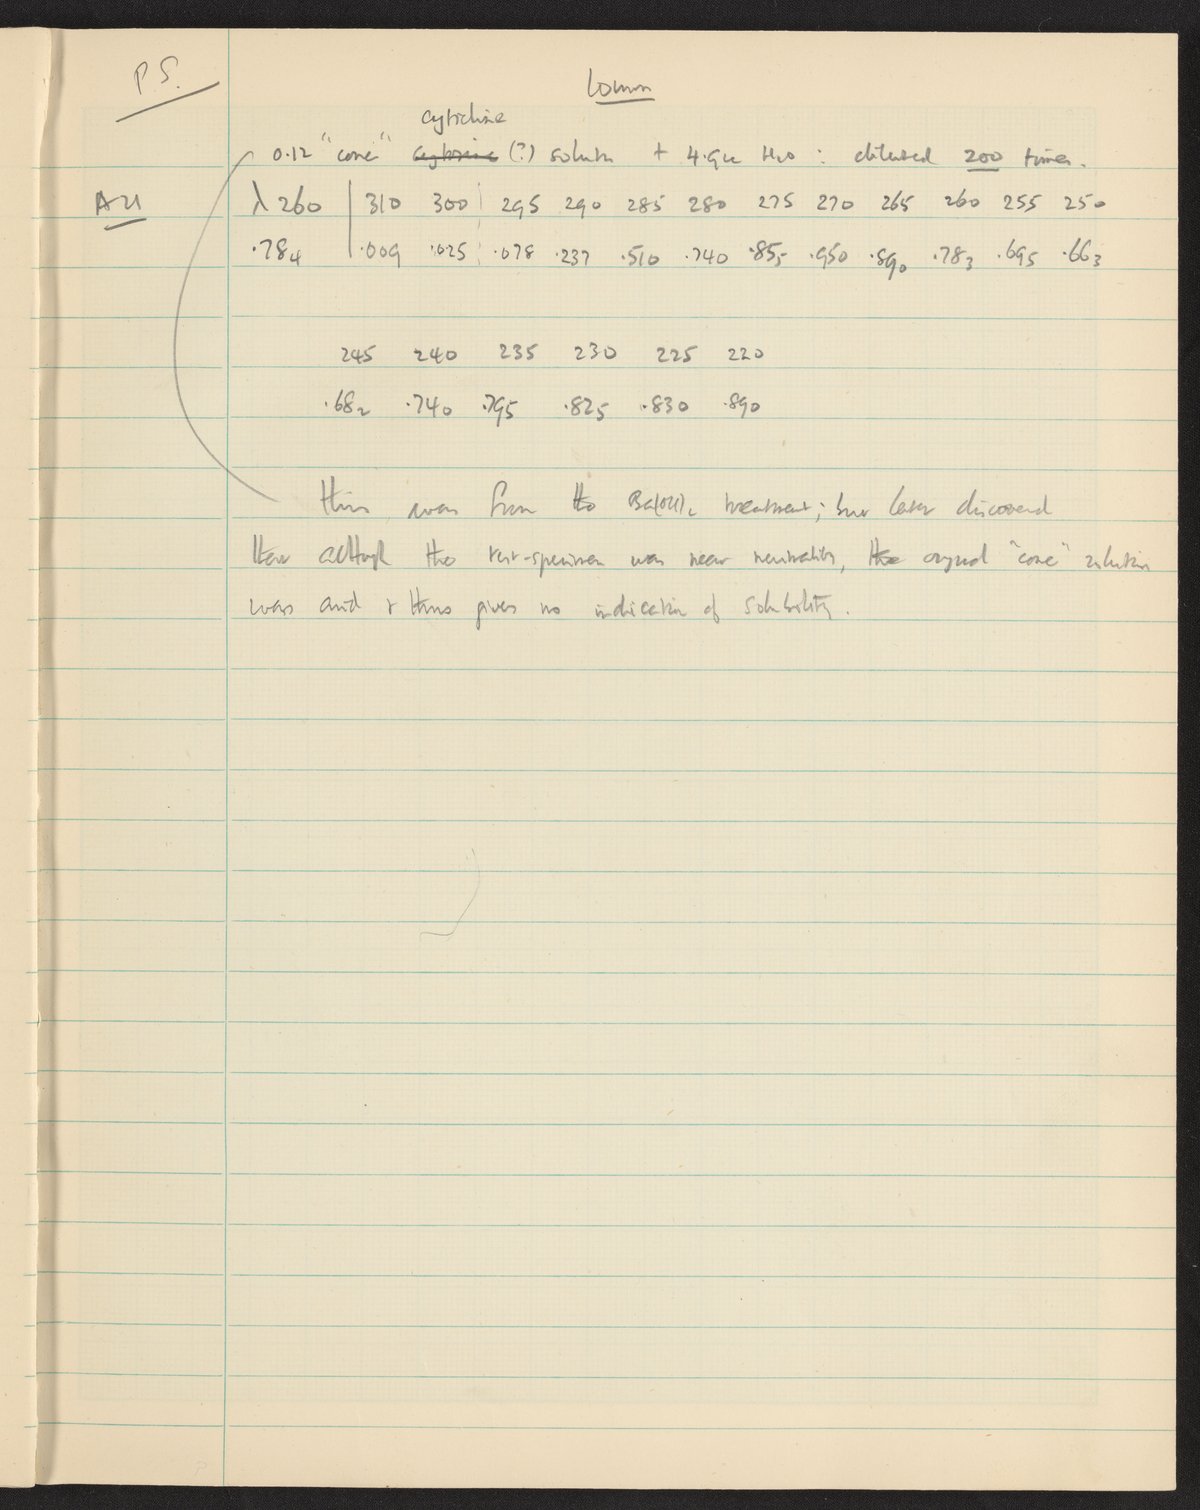 P.S.
cytidine
0.12 "conc" cytosine (?) solution + 4.9cc H2O : diluted 200 times.
A21 λ 260 310 300 295 290 285 280 275 270 265 260 255 250
.784 .009 .025 .078 .237 .510 .740 .855 .950 .890 .783 .695 .663
245 240 235 230 225 220
.682 .740 .795 .825 .830 .890
this was from the Ba(OH)2 treatment; but later discovered
that although the test-specimen was near neutrality, the original "conc" solution
was acid & thus gives no indication of solubility.